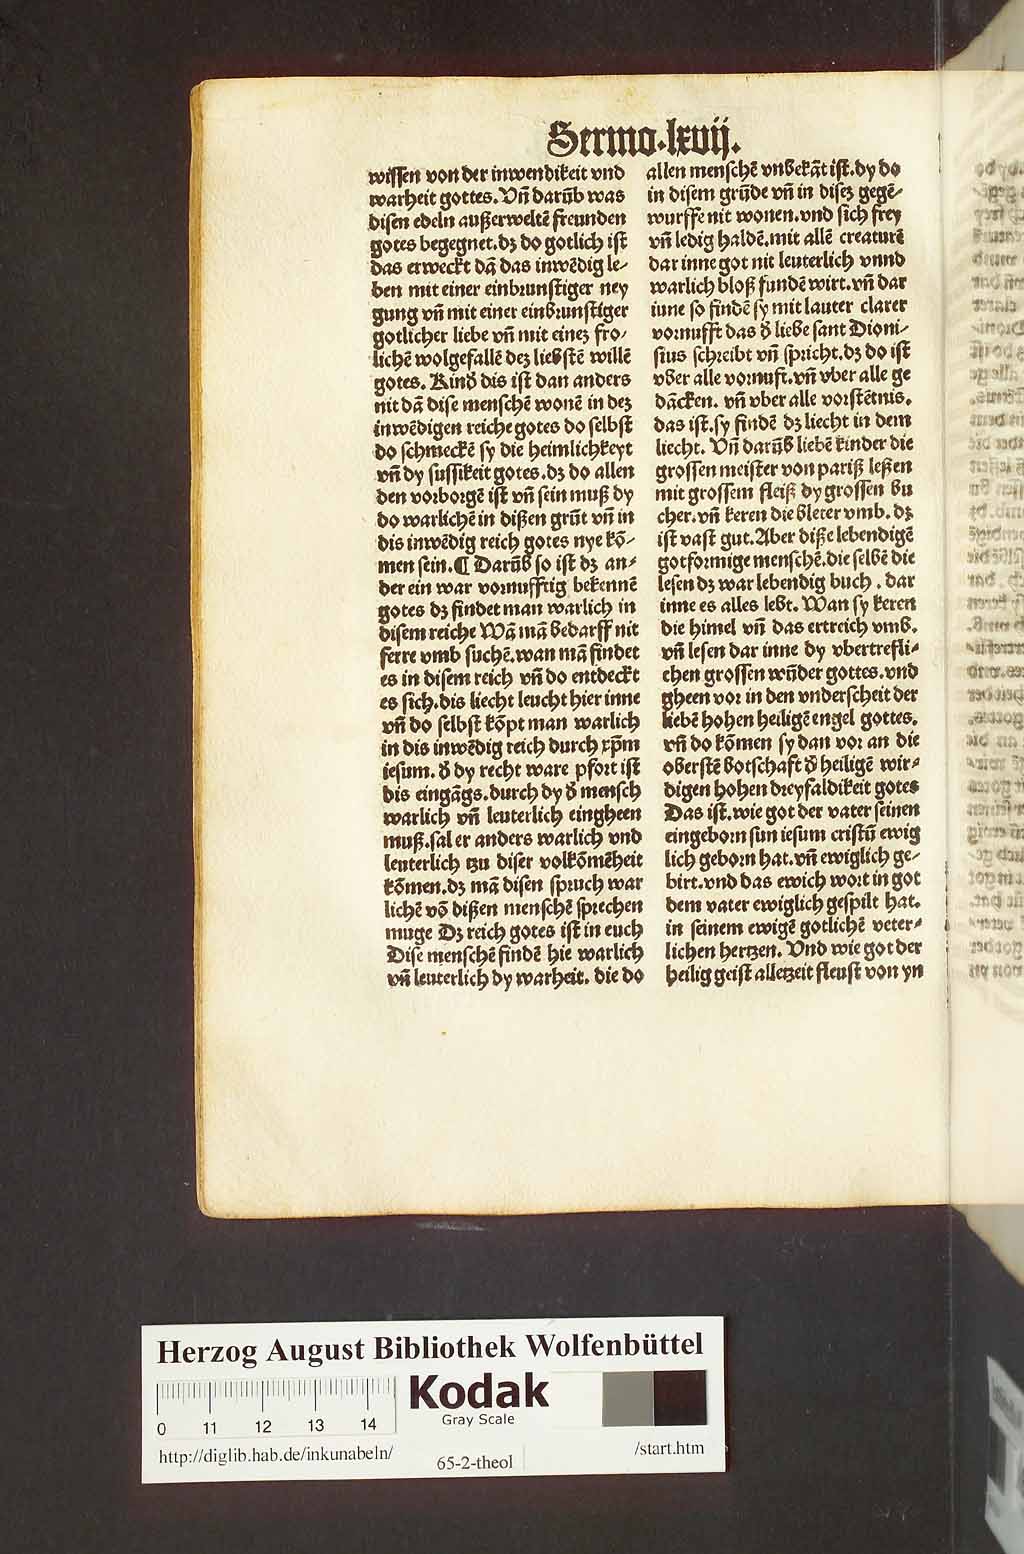 Sermo.lxvij.
wissen von der inwendikeit vnd
warheit gottes. Vñ darũb was
disen edeln außerweltē freunden
gotes begegnet.dz do gotlich ist
das erweckt dā das inwēdig le-
ben mit einer einbrunstiger ney
gung vñ mit einer einbrunstiger
gotlicher liebe vñ mit einez fro-
lichē wolgefallē dez liebstē willē
gotes. Kind̾ dis ist dan anders
nit dā dise menschē wonē in dez
inwēdigen reiche gotes do selbst
do schmeckē sy die heimlichkeyt
vñ dy sussikeit gotes.dz do allen
den vorborgē ist vñ sein muß dy
do warlichē in dißen grūt vñ in
dis inwēdig reich gotes nye kō-
men sein.¶ Darũb so ist dz an-
der ein war vornufftig bekennē
gotes dz findet man warlich in
disem reiche Wā mā bedarff nit
ferre vmb suchē.wan mā findet
es in disem reich vñ do entdeckt
es sich.dis liecht leucht hier inne
vñ do selbst kōpt man warlich
in dis inwēdig reich durch xp̄m
iesum. d̾ dy recht ware pfort ist
dis eingāgs.durch dy d̾ mensch
warlich vñ leuterlich eingheen
muß.sal er anders warlich vnd
leuterlich tzu diser volkōmēheit
kōmen.dz mā disen spruch war
lichē vō dißen menschē sprechen
muge Dz reich gotes ist in euch
Dise menschē findē hie warlich
vñ leuterlich dy warheit. die do
allen menschē vnbekāt ist.dy do
in disem grũde vñ in disez gegē-
wurffe nit wonen.vnd sich frey
vñ ledig haldē.mit allē creaturē
dar inne got nit leuterlich vnnd
warlich bloß fundē wirt.vñ dar
iune so findē sy mit lauter clarer
vornufft das d̾ liebe sant Dioni-
sius schreibt vñ spricht.dz do ist
vber alle vornuft.vñ vber alle ge
dācken. vñ vber alle vorstētnis.
das ist.sy findē dz liecht in dem
liecht. Vñ darũb liebē kinder die
grossen meister von pariß leßen
mit grossem fleiß dy grossen bu
cher.vñ keren die bleter vmb. dz
ist vast gut.Aber diße lebendigē
gotformige menschē.die selbē die
lesen dz war lebendig buch . dar
inne es alles lebt. Wan sy keren
die himel vñ das ertreich vmb.
vñ lesen dar inne dy vbertrefli-
chen grossen wũder gottes.vnd
gheen vor in den vnderscheit der
liebē hohen heiligē engel gottes.
vñ do kōmen sy dan vor an die
oberstē botschaft d̾ heiligē wir-
digen hohen dreyfaldikeit gotes
Das ist.wie got der vater seinen
eingeborn sun iesum cristũ ewig
lich geborn hat.vñ ewiglich ge-
birt.vnd das ewich wort in got
dem vater ewiglich gespilt hat.
in seinem ewigē gotlichē veter-
lichen hertzen. Vnd wie got der
heilig geist alletzeit fleust von yn
Herzog August Bibliothek Wolfenbüttel
Kodak
Gray Scale
0 11 12 13 14
http://diglib.hab.de/inkunabeln/ 65-2-theol /start.htm